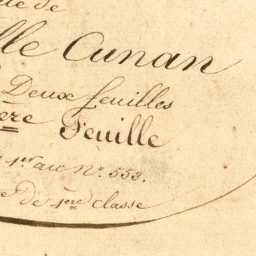 de
lle Cunan
Deux feuilles
ère Feuille
1er au No. 553.
de 4me classe